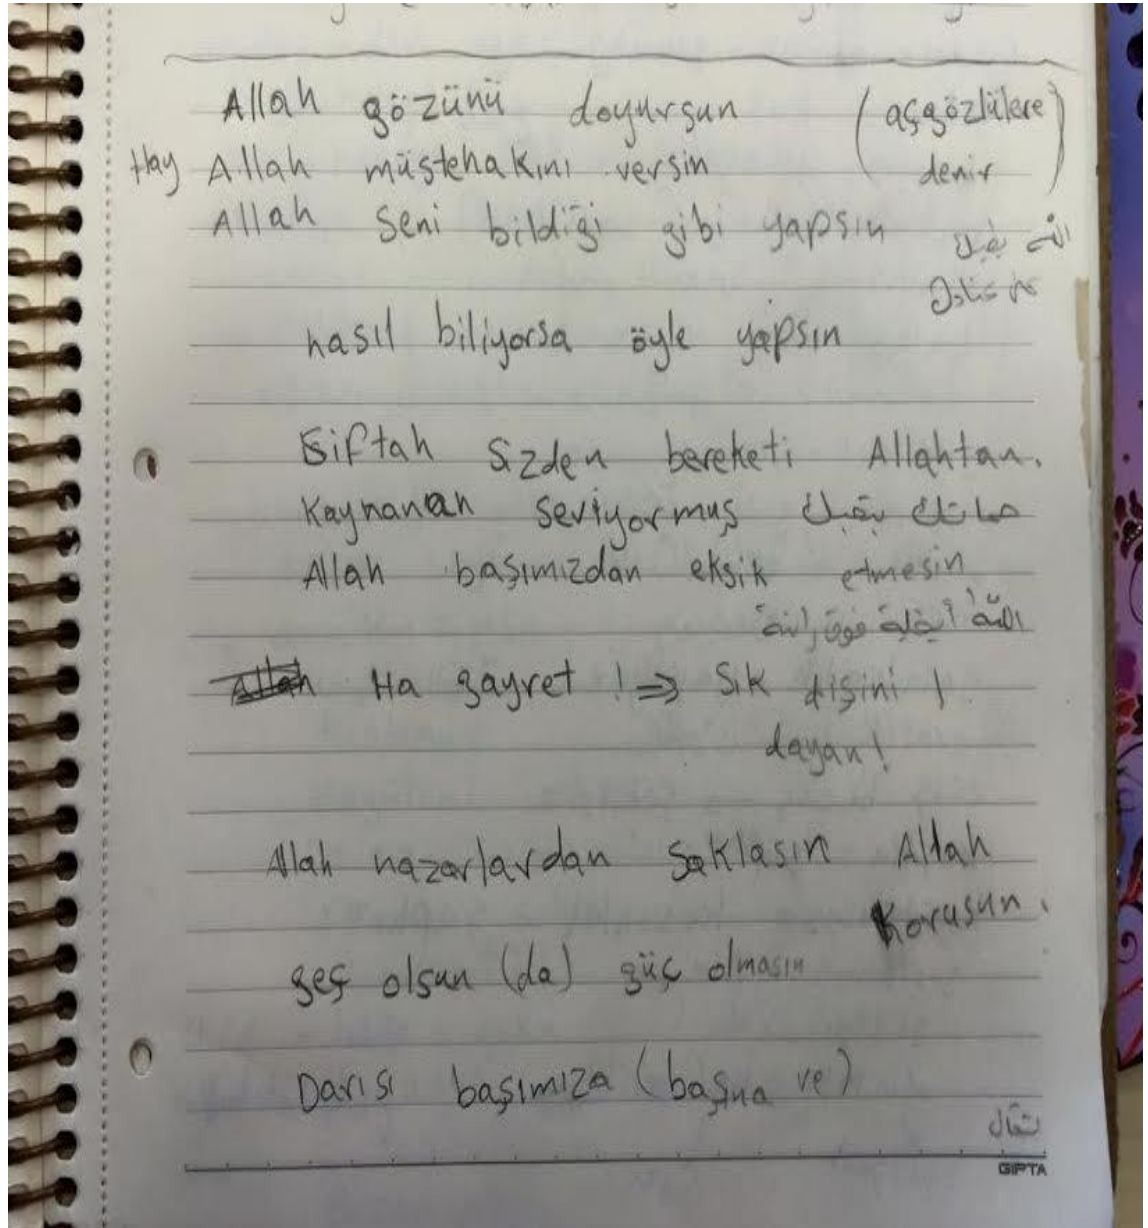 Allah gözünü doyursun (açgözlülere
Hay Allah müştehakını versin denir)
Allah seni bildiği gibi yapsın الله
nasıl biliyorsa öyle yapsın
Siftah Sizden bereketi Allahtan.
Kaynanan seviyormuş حماتك بتحبك
Allah başımızdan eksik etmesin
الله
Ha gayret ! ⇒ Sık dişini !
dayan !
Allah nazarlardan saklasın Allah
Korusun.
geç olsun (da) güç olmasın
Darısı başımıza (başına ve)
GIPTA